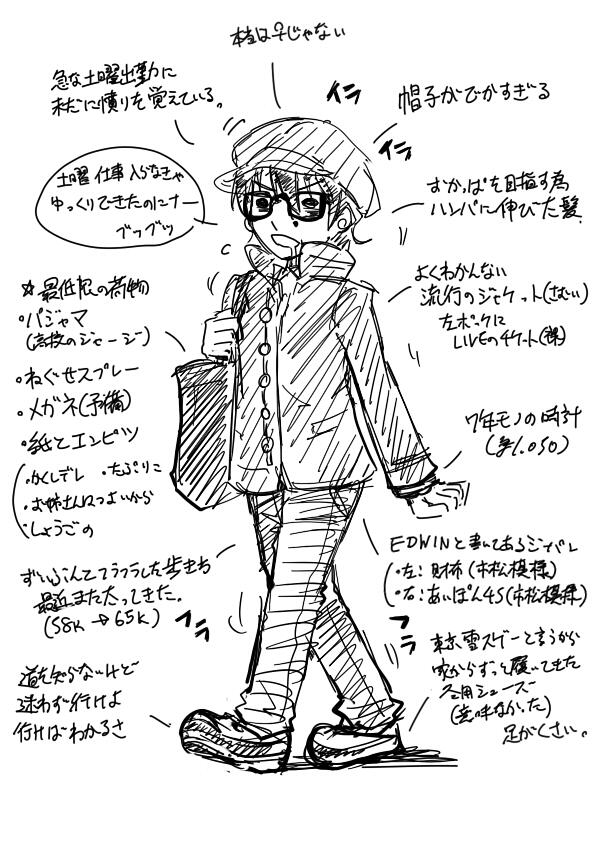 本当は♀じゃない
急な土曜出勤に
未だに憤りを覚えている。
イラ
帽子がでかすぎる
イラ
土曜仕事入らなきゃ
ゆっくりできたのにナー
ブツブツ
おかっぱを目指す為
ハンパに伸びた髪
よくわかんない
流行のジャケット(さむい)
左ポッケに
LIVEのチケット(裸)
☆最低限の荷物
・パジャマ
(高校のジャージ)
・ねぐせスプレー
・メガネ(予備)
・紙とエンピツ
・かくしデレ ・たぷりこ
・お姉さんはつよいから
・しょうごの
7年モノの時計
(¥1,050)
EDWINと書いてあるジーパン
・左: 財布(市松模様)
・右: あいぽん4S(市松模様)
ずいぶんとフラフラした歩き方
最近また太ってきた。
(58K→65K)
イラ
イラ
東京雪スゲーと言うから
家からずっと履いてきた
冬用シューズ
(意味なかった)
足がくさい。
道を知らないけど
迷わず行けよ
行けばわかるさ